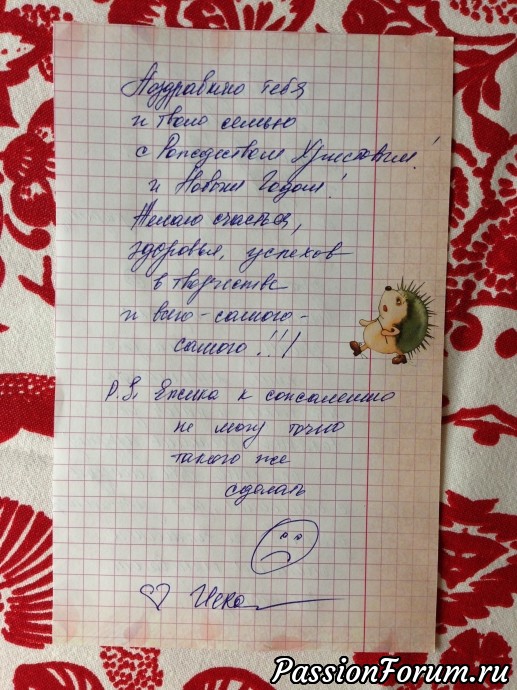 Поздравляю тебя
и твою семью
с Рождеством Христовым!
и Новым Годом!
Желаю счастья,
здоровья, успехов
в творчестве
и всего-самого-
самого!!!
P.S. Ёжика к сожалению
не могу точно
такого же
сделать
PassionForum.ru